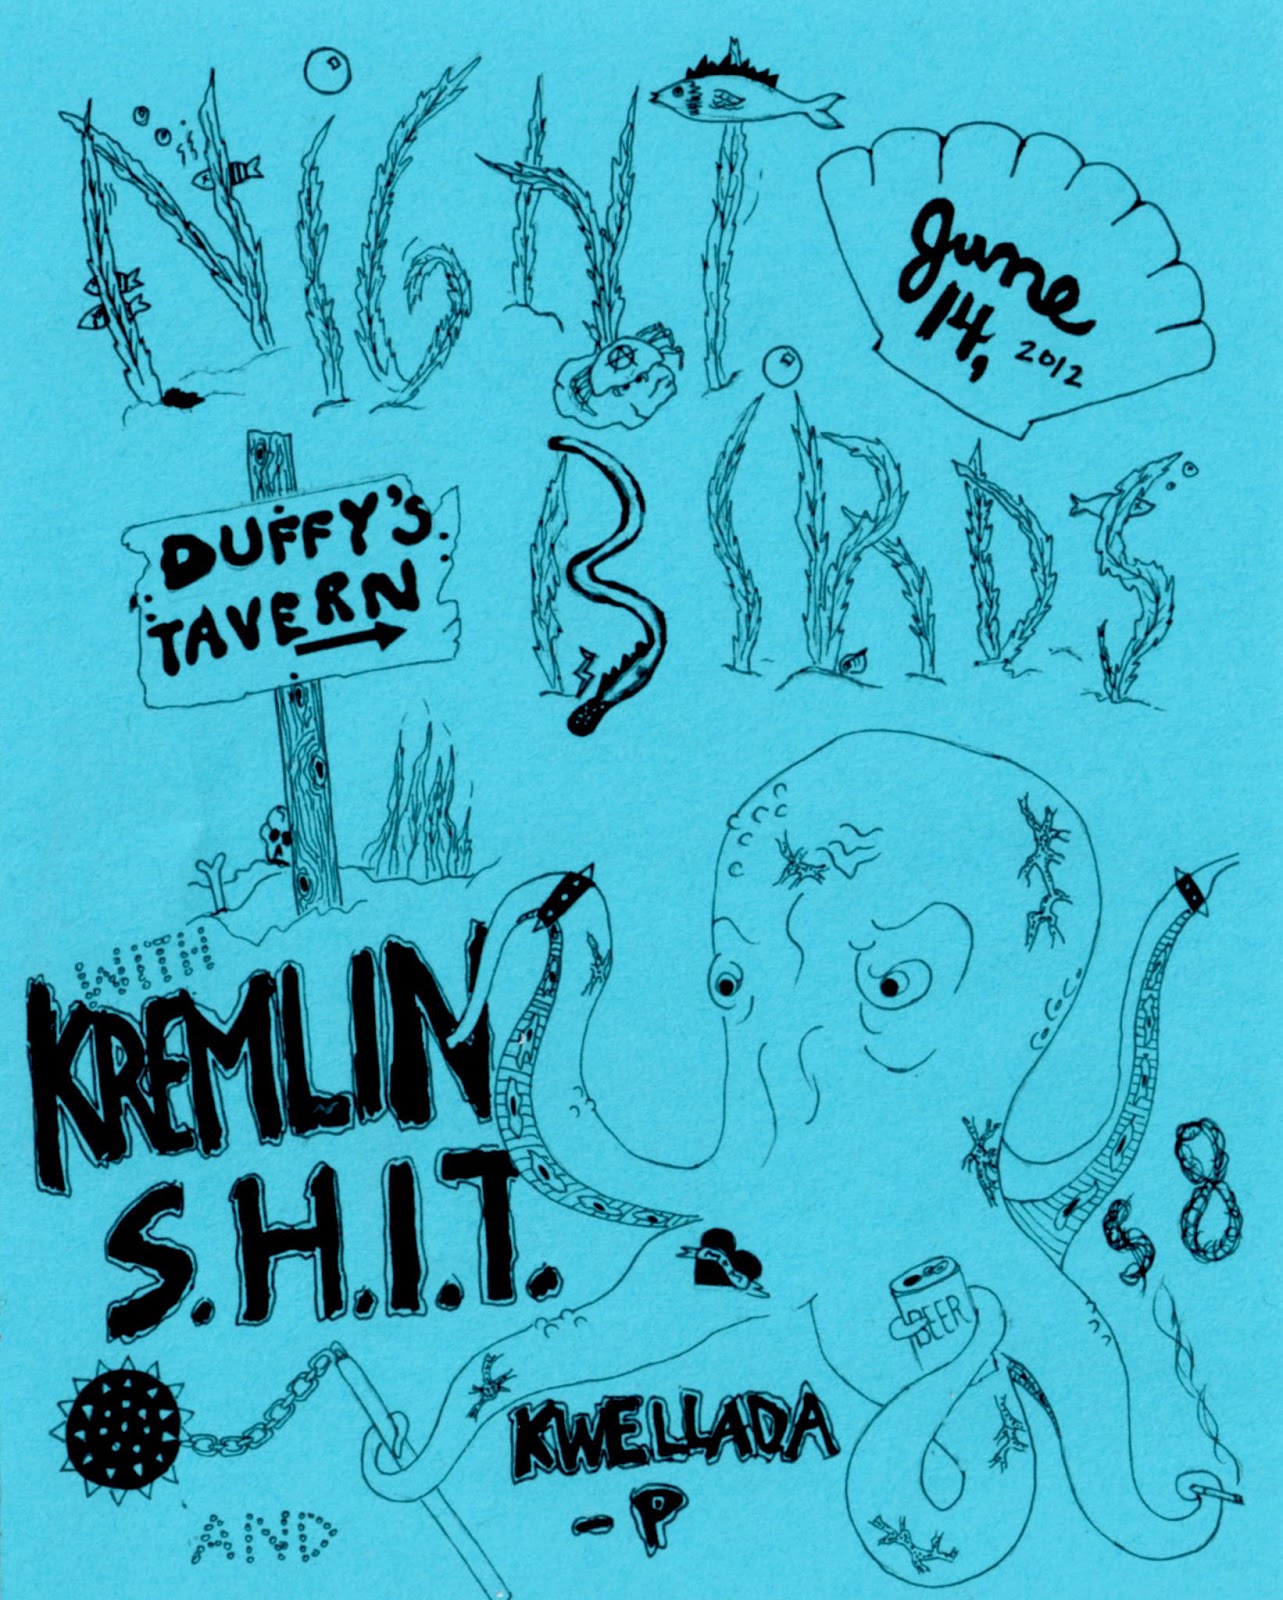 NIGHT
BIRDS
June
14,
2012
DUFFY'S
TAVERN
WITH
KREMLIN
S.H.I.T.
$8
BEER
KWELLADA
-P
AND